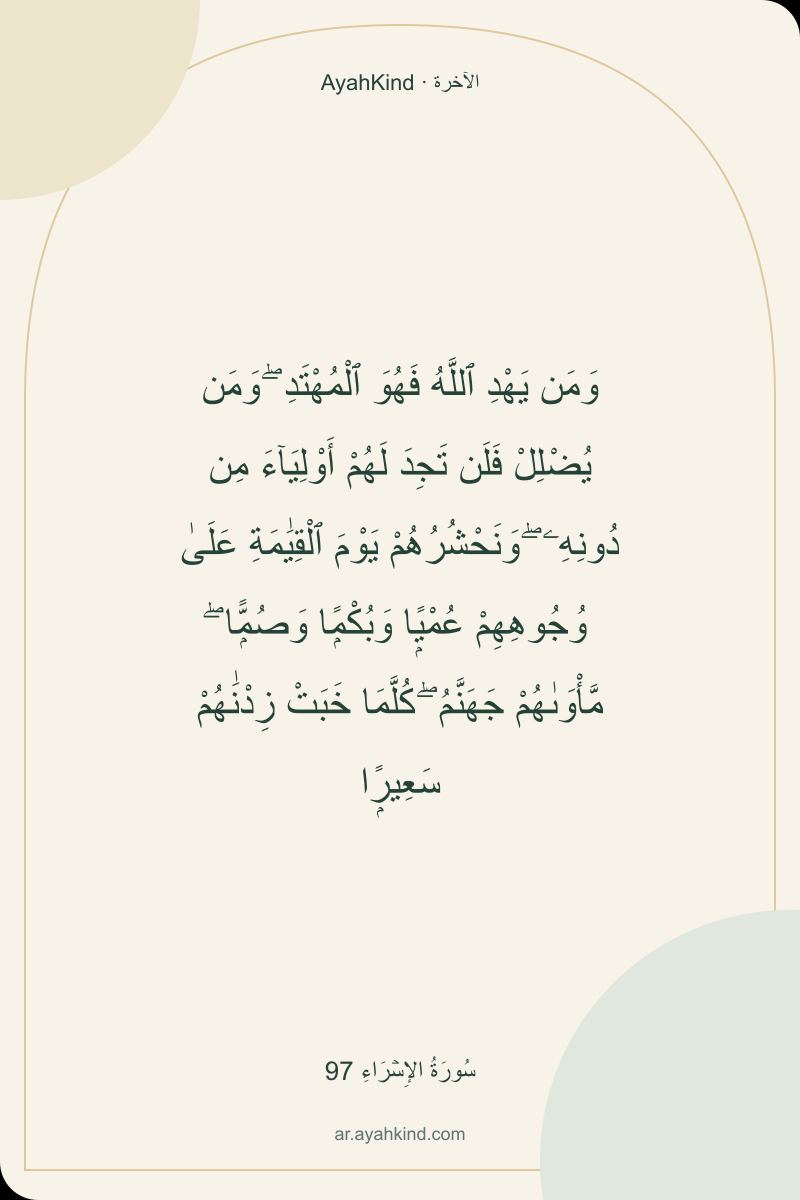 AyahKind · الآخرة
وَمَن يَهْدِ ٱللَّهُ فَهُوَ ٱلْمُهْتَدِ ۖ وَمَن
يُضْلِلْ فَلَن تَجِدَ لَهُمْ أَوْلِيَآءَ مِن
دُونِهِۦ ۖ وَنَحْشُرُهُمْ يَوْمَ ٱلْقِيَٰمَةِ عَلَىٰ
وُجُوهِهِمْ عُمْيًۭا وَبُكْمًۭا وَصُمًّۭا ۖ
مَّأْوَىٰهُمْ جَهَنَّمُ ۖ كُلَّمَا خَبَتْ زِدْنَٰهُمْ
سَعِيرًۭا
سُورَةُ الإِسۡرَاءِ 97
ar.ayahkind.com